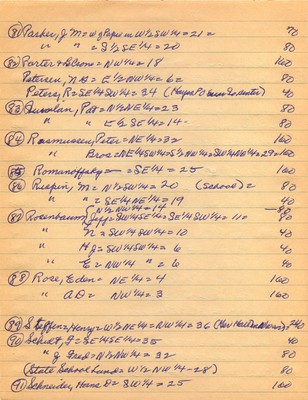 (81) Parker, J M = W½SW¼ = 21 = 70
" " = S½SE¼ = 20 80
(82) Porter & Sons = NW¼ = 18 160
Petersen, N B = E½NW¼ = 6 = 80
Peters, R = SE¼SW¼ = 34 40
(83) Pat = N½NE¼ = 23 80
" " E½SE¼ = 14 - 80
(84) Rasmussen, Peter = NE¼ = 32 160
" Bros = NE¼SW¼ = S½NW¼ = SW¼NE¼ = 29 = 160
(85) Romanoffsky = = SE¼ = 25 160
(86) Ruspin, M = N½SW¼ = 20 (School) = 80
" " = SE¼NE¼ = 19 40
(N½NW¼ = 14 - 80
(87) Rosenbaum, Jeff = SW¼SE¼ = SE¼SW¼ = 11 = 80
" N = SW¼SW¼ = 10 40
" Hg = SW¼SW¼ = 6 40
" E = NW¼ " = 6 40
(88) Rose, Eden = NE¼ = 4 160
" A D = NW¼ = 3 160
(89) Steffen = Henry = W½NE¼ = NW¼ = 36 240
(90) Schult, F = SE¼SE¼ = 35 40
" J Fred = N½NW¼ = 32 80
(State School Land = W½NW¼ - 28) 80
(91) Schneider, Hans D = SW¼ = 25 160